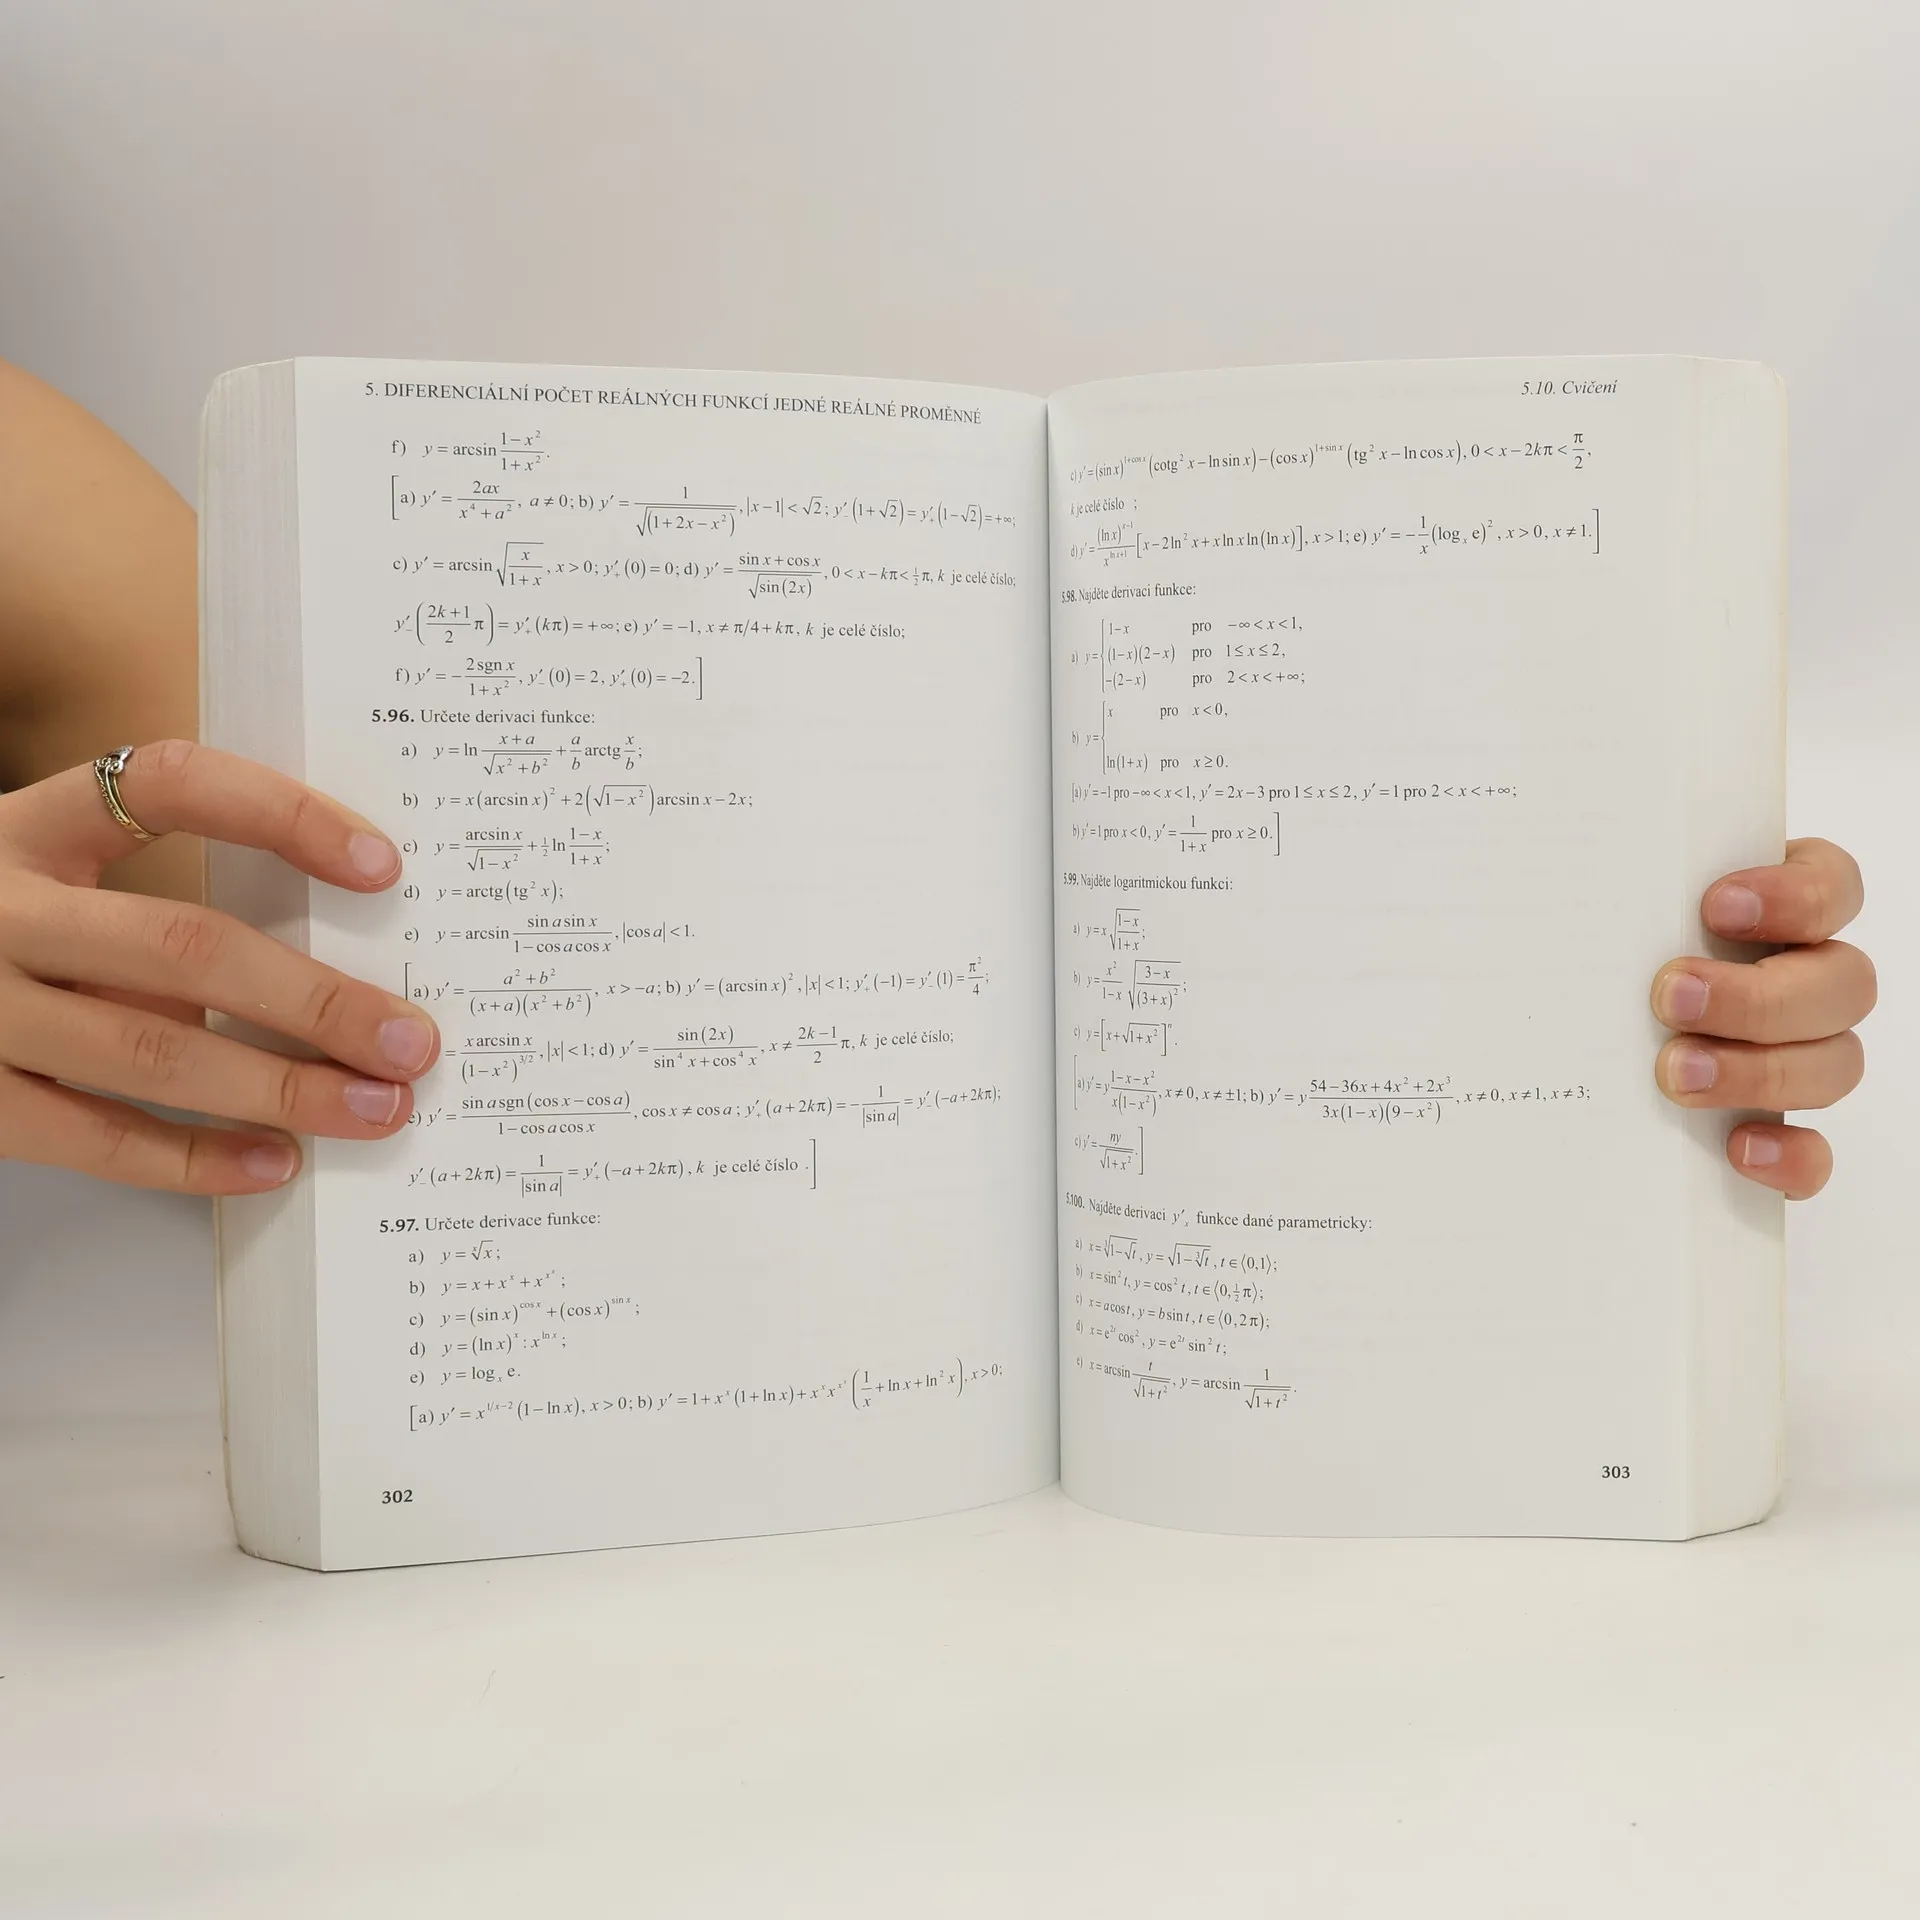 5. DIFERENCIÁLNÍ POČET REÁLNÝCH FUNKCÍ JEDNÉ REÁLNÉ PROMĚNNÉ
f) y = arcsin (1−x²)/(1+x²).
[a) y′ = 2ax/(x⁴+a²), a ≠ 0; b) y′ = 1/√(1+2x−x²), |x−1| < √2; y′₋(1+√2) = y′₊(1−√2) = +∞;
c) y′ = arcsin √(x/(1+x)), x > 0; y′₊(0) = 0; d) y′ = (sin x + cos x)/√(sin(2x)), 0 < x − kπ < ½π, k je celé číslo;
y′₋((2k+1)/2 π) = y′₊(kπ) = +∞; e) y′ = −1, x ≠ π/4 + kπ, k je celé číslo;
f) y′ = −(2 sgn x)/(1+x²), y′₋(0) = 2, y′₊(0) = −2.]
5.96. Určete derivaci funkce:
a) y = ln (x+a)/√(x²+b²) + a/b arctg x/b;
b) y = x(arcsin x)² + 2(√(1−x²)) arcsin x − 2x;
c) y = arcsin x/√(1−x²) + ½ ln (1−x)/(1+x);
d) y = arctg(tg² x);
e) y = arcsin (sin a sin x)/(1−cos a cos x), |cos a| < 1.
[a) y′ = (a²+b²)/((x+a)(x²+b²)), x > −a; b) y′ = (arcsin x)², |x| < 1; y′₊(−1) = y′₋(1) = π²/4;
= (x arcsin x)/(1−x²)^(3/2), |x| < 1; d) y′ = sin(2x)/(sin⁴ x + cos⁴ x), x ≠ (2k−1)/2 π, k je celé číslo;
e) y′ = (sin a sgn(cos x − cos a))/(1−cos a cos x), cos x ≠ cos a; y′₊(a+2kπ) = −1/|sin a| = y′₋(−a+2kπ);
y′₋(a+2kπ) = 1/|sin a| = y′₊(−a+2kπ), k je celé číslo .]
5.97. Určete derivace funkce:
a) y = ˣ√x;
b) y = x + x^x + x^(x^x);
c) y = (sin x)^(cos x) + (cos x)^(sin x);
d) y = (ln x)^x : x^(ln x);
e) y = logₓ e.
[a) y′ = x^(1/x−2) (1−ln x), x > 0; b) y′ = 1 + x^x (1+ln x) + x^x x^(x^x) (1/x + ln x + ln² x), x > 0;
302
5.10. Cvičení
c) y′ = (sin x)^(1+cos x) (cotg² x − ln sin x) − (cos x)^(1+sin x) (tg² x − ln cos x), 0 < x − 2kπ < π/2,
k je celé číslo ;
d) y′ = (ln x)^(x−1)/x^(ln x+1) [x − 2 ln² x + x ln x ln(ln x)], x > 1; e) y′ = −1/x (logₓ e)², x > 0, x ≠ 1.]
5.98. Najděte derivaci funkce:
a) y = { 1−x pro −∞ < x < 1,
(1−x)(2−x) pro 1 ≤ x ≤ 2,
−(2−x) pro 2 < x < +∞;
b) y = { x pro x < 0,
ln(1+x) pro x ≥ 0.
[a) y′ = −1 pro −∞ < x < 1, y′ = 2x−3 pro 1 ≤ x ≤ 2, y′ = 1 pro 2 < x < +∞;
b) y′ = 1 pro x < 0, y′ = 1/(1+x) pro x ≥ 0.]
5.99. Najděte logaritmickou funkci:
a) y = x √((1−x)/(1+x));
b) y = x²/(1−x) √((3−x)/(3+x)²);
c) y = [x + √(1+x²)]ⁿ.
[a) y′ = y (1−x−x²)/(x(1−x²)), x ≠ 0, x ≠ ±1; b) y′ = y (54−36x+4x²+2x³)/(3x(1−x)(9−x²)), x ≠ 0, x ≠ 1, x ≠ 3;
c) y′ = ny/√(1+x²).]
5.100. Najděte derivaci y′ₓ funkce dané parametricky:
a) x = ³√(1−√t), y = √(1−³√t), t ∈ ⟨0,1⟩;
b) x = sin² t, y = cos² t, t ∈ ⟨0, ½π⟩;
c) x = a cos t, y = b sin t, t ∈ ⟨0, 2π⟩;
d) x = e^(2t) cos², y = e^(2t) sin² t;
e) x = arcsin t/√(1+t²), y = arcsin 1/√(1+t²).
303